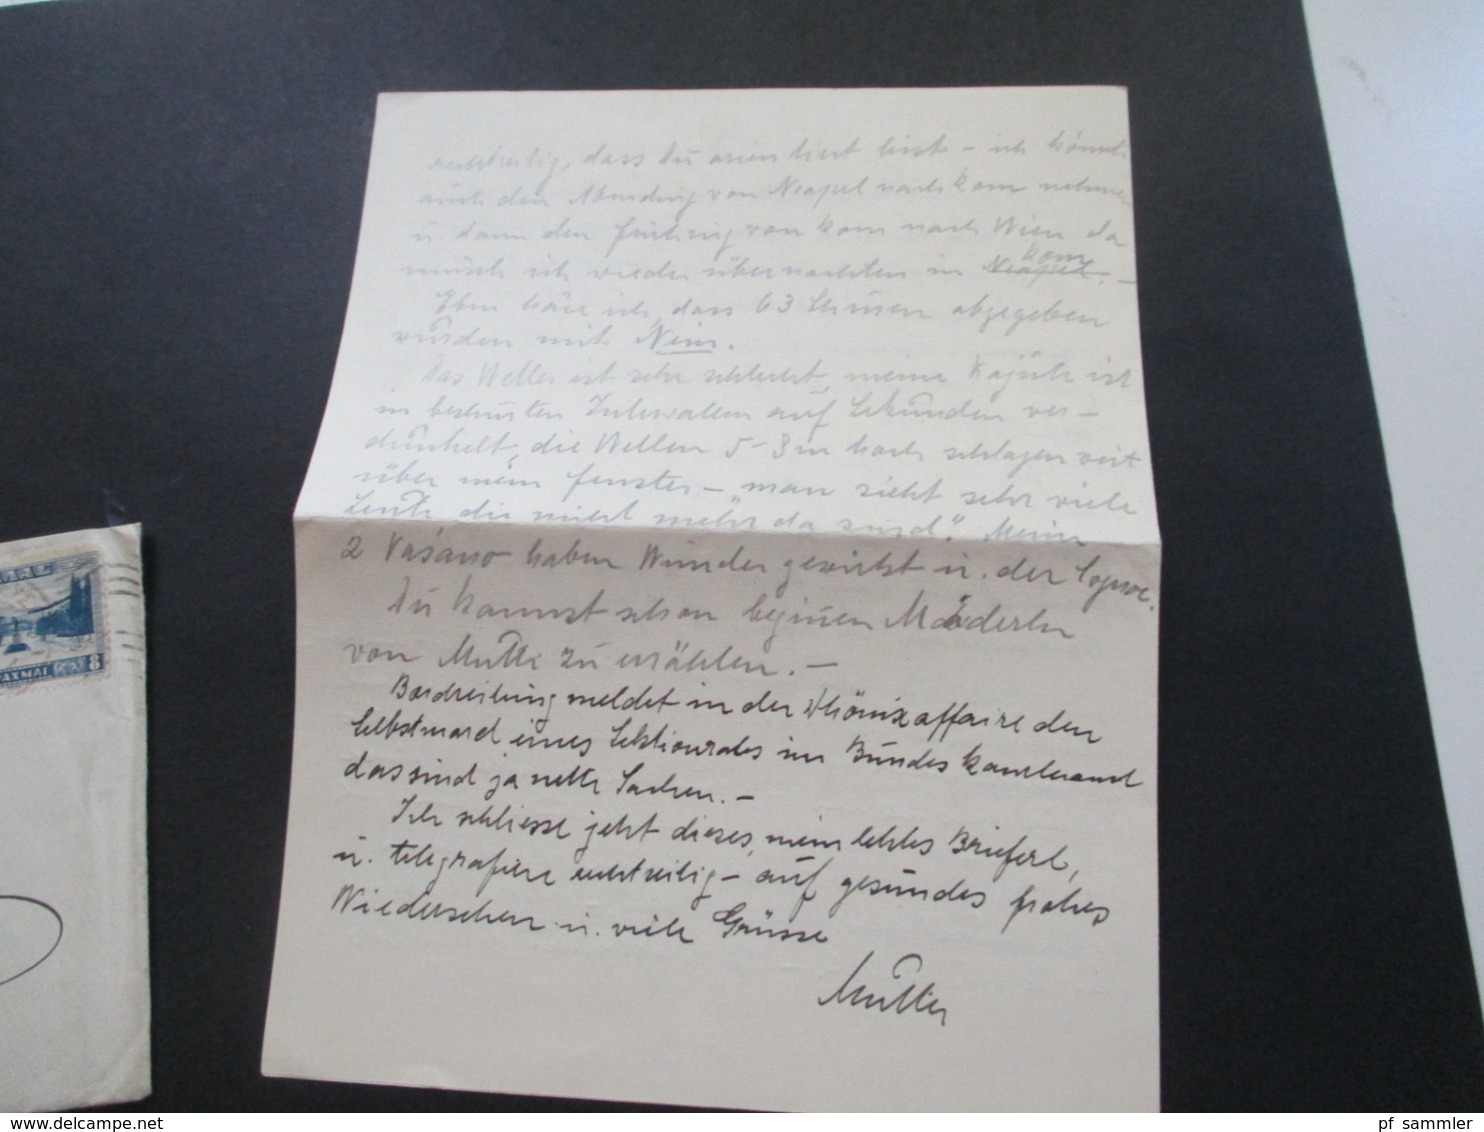 rechtzeitig, dass Du orientiert bist – ich könnte
auch den Abendzug von Neapel nach Rom nehmen
u. dann den Frühzug von Rom nach Wien da
müsste ich wieder übernachten in Neapel Rom. –
Eben höre ich, dass 63 Stimmen abgegeben
wurden mit Nein.
Das Wetter ist sehr schlecht, meine Kajüte ist
in bestimmten Intervallen auf Sekunden ver-
dunkelt, die Wellen 5-8 m hoch schlagen weit
über mein Fenster – man sieht sehr viele
Leute die nicht mehr da sind". Meine
2 Vasano haben Wunder gewirkt u. der Cognac.
Du kannst schon beginnen Mäderln
von Mutti zu erzählen. –
Bordzeitung meldet in der Phönixaffaire den
Selbstmord eines Sektionsrates im Bundeskanzleramt
das sind ja nette Sachen. –
Ich schliesse jetzt dieses, mein letztes Brieferl,
u. telegrafiere rechtzeitig – auf gesundes frohes
Wiedersehen u. viele Grüsse
Mutter
8
pf sammler
delcampe.net